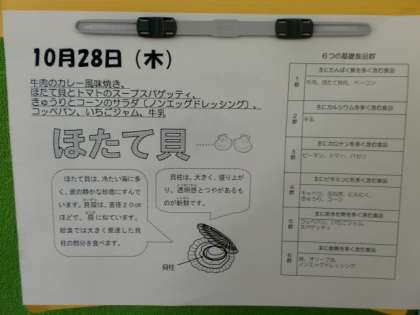 10月28日（木）
牛肉のカレー風味焼き、
ほたて貝とトマトのスープスパゲッティ、
きゅうりとコーンのサラダ（ノンエッグドレッシング）、
コッペパン、いちごジャム、牛乳
ほたて貝
ほたて貝は、冷たい海に多
く、波の静かな砂底にすんで
います。貝殻は、直径２０㎝
ほどで、扇に似ています。
給食では大きく発達した貝
柱の部分を食べます。
貝柱は、大きく、盛り上が
り、透明感とつやがあるもの
が新鮮です。
貝柱
６つの基礎食品群
１群
主にたんぱく質を多く含む食品
牛肉、ほたて貝柱、ベーコン
２群
主にカルシウムを多く含む食品
牛乳
３群
主にカロテンを多く含む食品
ピーマン、トマト、パセリ
４群
主にビタミンCを多く含む食品
キャベツ、玉ねぎ、にんにく、
きゅうり、コーン
５群
主に炭水化物を多く含む食品
コッペパン、いちごジャム、
スパゲティ
６群
主に脂質を多く含む食品
油、オリーブ油、
ノンエッグドレッシング